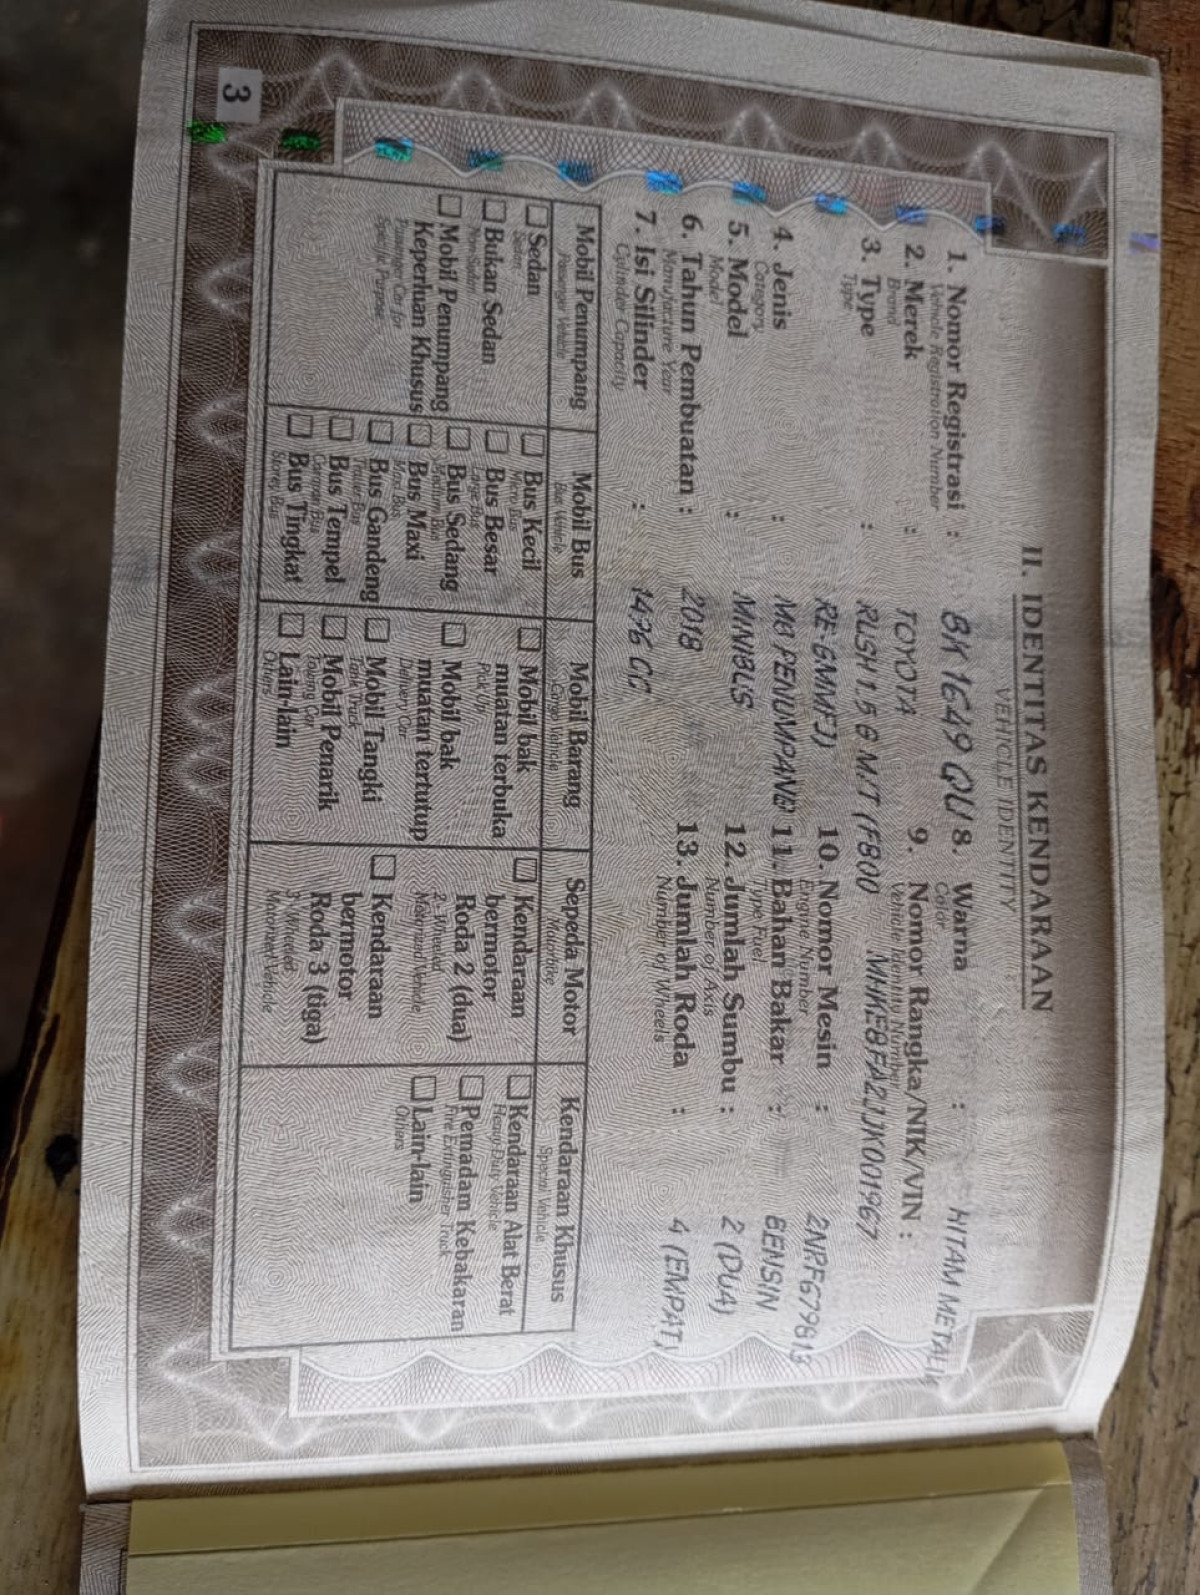 II. IDENTITAS KENDARAAN
VEHICLE IDENTITY
1. Nomor Registrasi : BK 1649 QU
Vehicle Registration Number
2. Merek : TOYOTA
Brand
3. Type : RUSH 1.5 G M.T (F800
Type
RE-GMMFJ)
4. Jenis : MB PENUMPANG
Category
5. Model : MINIBUS
Model
6. Tahun Pembuatan : 2018
Manufacture Year
7. Isi Silinder : 1496 CC
Cylinder Capacity
8. Warna : HITAM METALIK
Color
9. Nomor Rangka/NIK/VIN :
Vehicle Identity Number
MHKE8FA2JJK001967
10. Nomor Mesin : 2NRF679613
Engine Number
11. Bahan Bakar : BENSIN
Type Fuel
12. Jumlah Sumbu : 2 (DUA)
Number of Axis
13. Jumlah Roda : 4 (EMPAT)
Number of Wheels
Mobil Penumpang
Passenger Vehicle
Sedan
Sedan
Bukan Sedan
Non Sedan
Mobil Penumpang
Keperluan Khusus
Passanger Car for
Special Purpose
Mobil Bus
Bus Vehicle
Bus Kecil
Micro Bus
Bus Besar
Large Bus
Bus Sedang
Medium Bus
Bus Maxi
Maxi Bus
Bus Gandeng
Bus Tempel
Bus Tingkat
Storey Bus
Mobil Barang
Cargo Vehicle
Mobil bak
muatan terbuka
Pick Up
Mobil bak
muatan tertutup
Delivery Car
Mobil Tangki
Tank Truck
Mobil Penarik
Towing Car
Lain-lain
Others
Sepeda Motor
Motorbike
Kendaraan
bermotor
Roda 2 (dua)
2 - Wheeled
Motorized Vehicle
Kendaraan
bermotor
Roda 3 (tiga)
3 - Wheeled
Motorized Vehicle
Kendaraan Khusus
Special Vehicle
Kendaraan Alat Berat
Heavy Duty Vehicle
Pemadam Kebakaran
Fire Extinguisher Truck
Lain-lain
Others
3